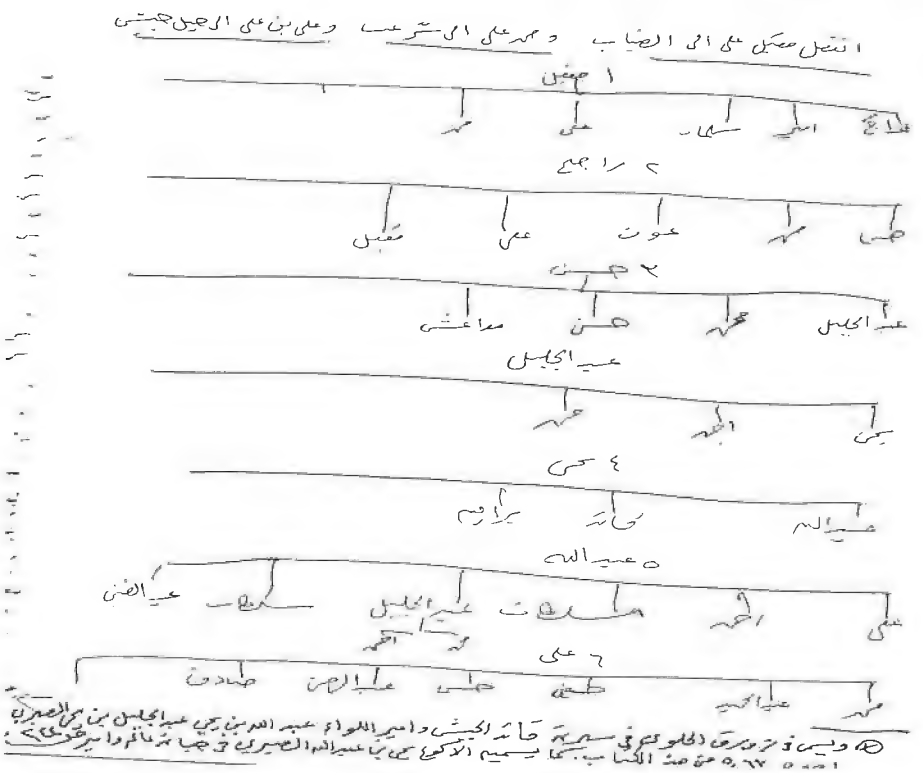 انتقل مقبل على الى الضباب و محمد على الى شرعب وعلى بن على الى جبل حبشي
١ مقبل
راجح احمد سلمان على محمد
٢ راجح
حسن محمد عوت على مقبل
٣ حسن
عبد الجليل محمد حسن مداعش
عبد الجليل
يحي احمد محمد
٤ يحي
عبد الله قائد
٥ عبد الله
على احمد سلطان عبد الجليل سلطان عبد الغني
محمد احمد
٦ على
محمد عبد الحميد حسين حسن عبد الرحمن صادق
وليس في سيرة قائد الجيش وامير اللواء عبد الله بن يحي عبد الجليل بن يحي الصبري
من هذا الكتاب بينما يسميه الاكوع يحي بن عبد الله الصبري في